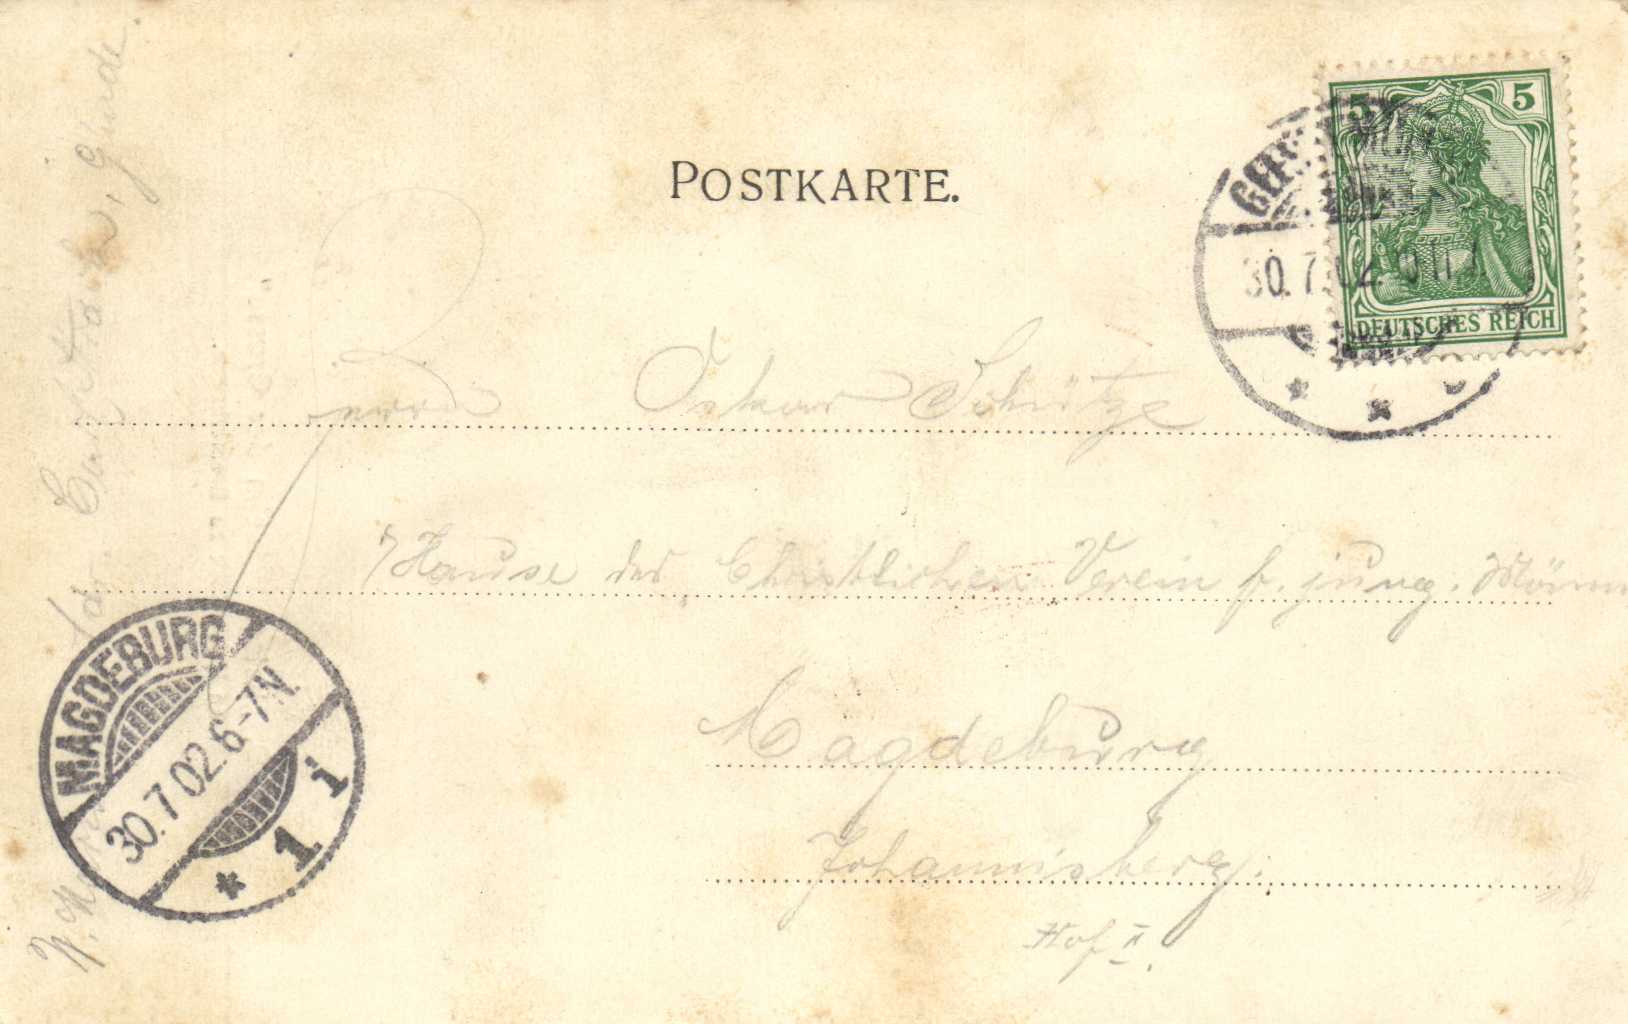 POSTKARTE.
5 5
DEUTSCHES REICH
30.7.02.
Herrn Oskar Schütze
Hause des Christlichen Verein f. jung. Männ
Magdeburg
Johannisberg.
Hof II.
MAGDEBURG
30.7.02.6-7N.
* 1 i